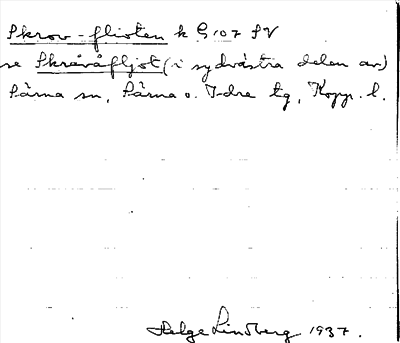 Skrov-flioten k G 107 SV
se Skråvåfljot (i sydvästra delen av)
Särna sn, Särna o. Idre tg, Kopp. l.
Helge Lindberg 1937.